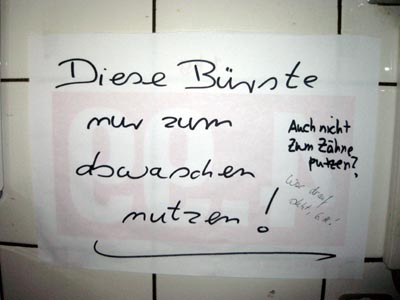 Diese Bürste
nur zum
abwaschen
nutzen!
Auch nicht
zum Zähne
putzen?
Wer drauf